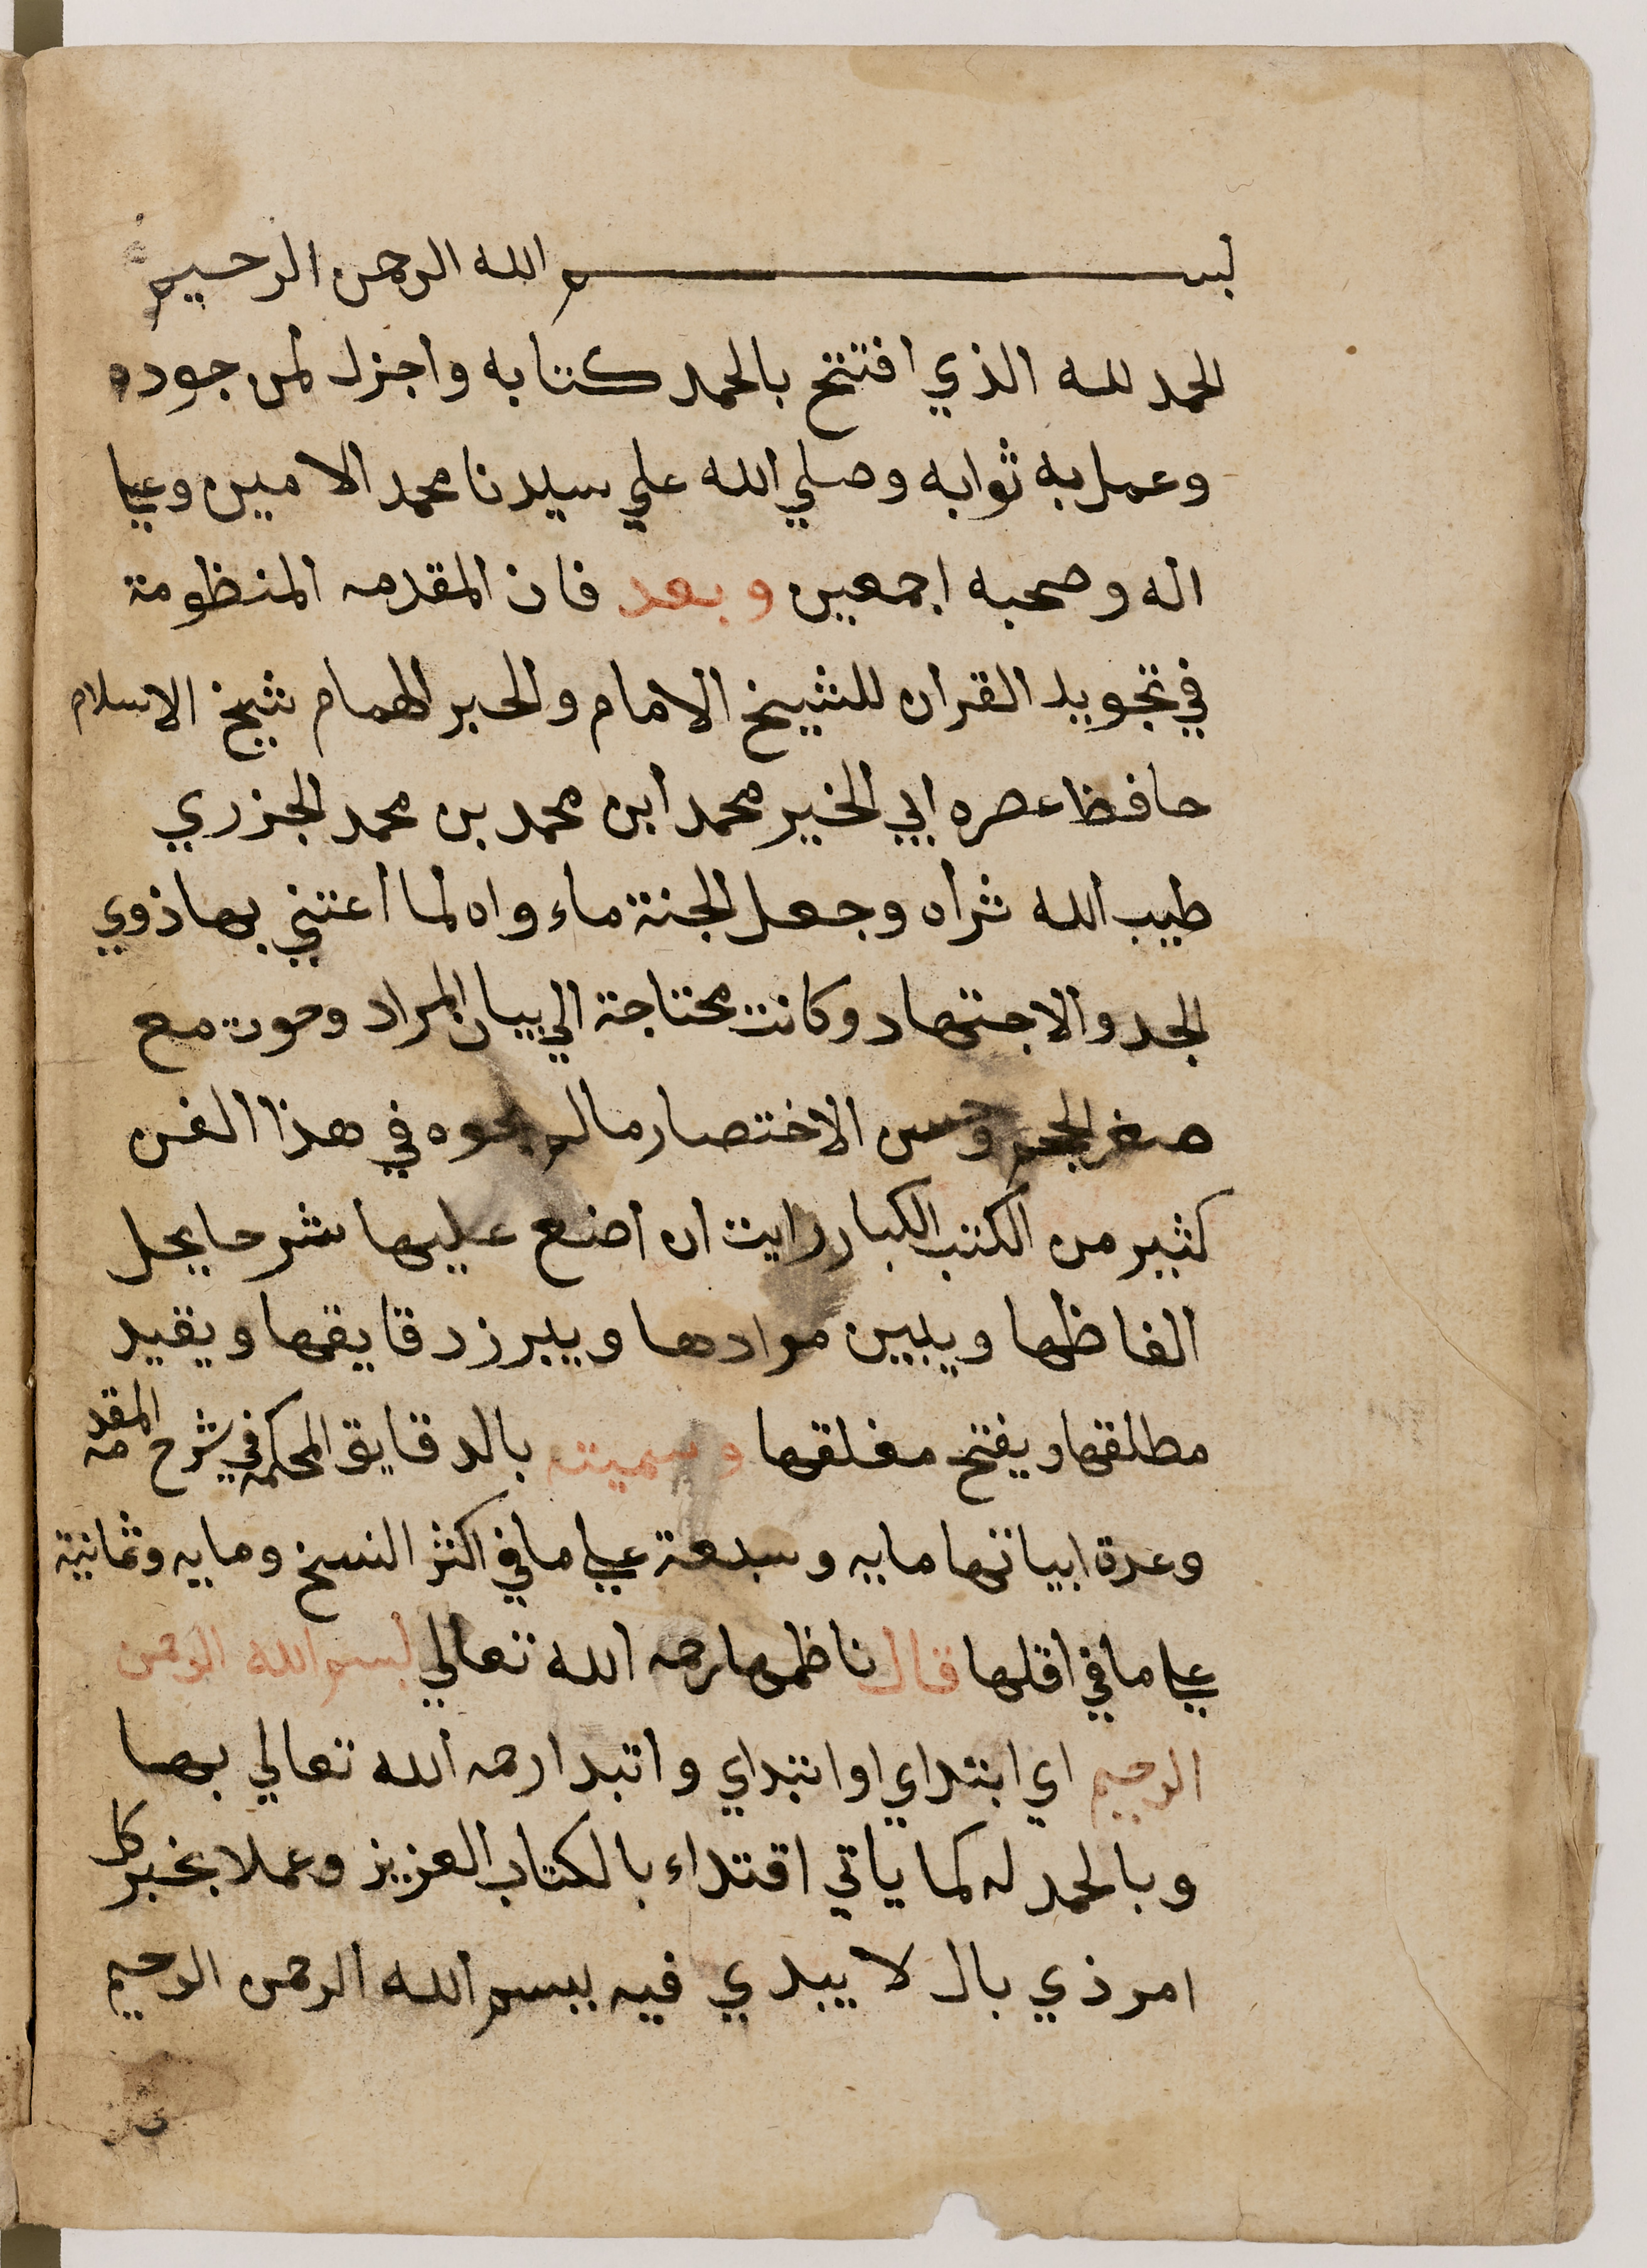 بسم الله الرحمن الرحيم
الحمد لله الذي افتتح بالحمد كتابه واجزل لمن جوده
وعمل به ثوابه وصلي الله علي سيدنا محمد الامين وعلي
اله وصحبه اجمعين وبعد فان المقدمه المنظومة
في تجويد القران للشيخ الامام والحبر الهمام شيخ الاسلام
حافظ عصره ابي الخير محمد ابن محمد بن محمد الجزري
طيب الله ثراه وجعل الجنة ماءواه لما اعتني بها ذوي
الجد والاجتهاد وكانت محتاجة الي بيان المراد وحوت مع
صغر الحجم وحسن الاختصار ما لم يحوه في هذا الفن
كثير من الكتب الكبار رايت ان اضع عليها شرحا يحل
الفاظها ويبين موادها ويبرز دقايقها ويقيد
مطلقها ويفتح مغلقها وسميته بالدقايق المحكمه في شرح المقدمه
وعدة ابياتها مايه وسبعة علي ما في اكثر النسخ ومايه وثمانية
علي ما في اقلها قال ناظمها رحمه الله تعالي بسم الله الرحمن
الرحيم اي ابتداي او ابتداي واتبدا رحمه الله تعالي بها
وبالحمد له كما ياتي اقتداء بالكتاب العزيز وعملا بخبر كل
امر ذي بال لا يبدي فيه ببسم الله الرحمن الرحيم